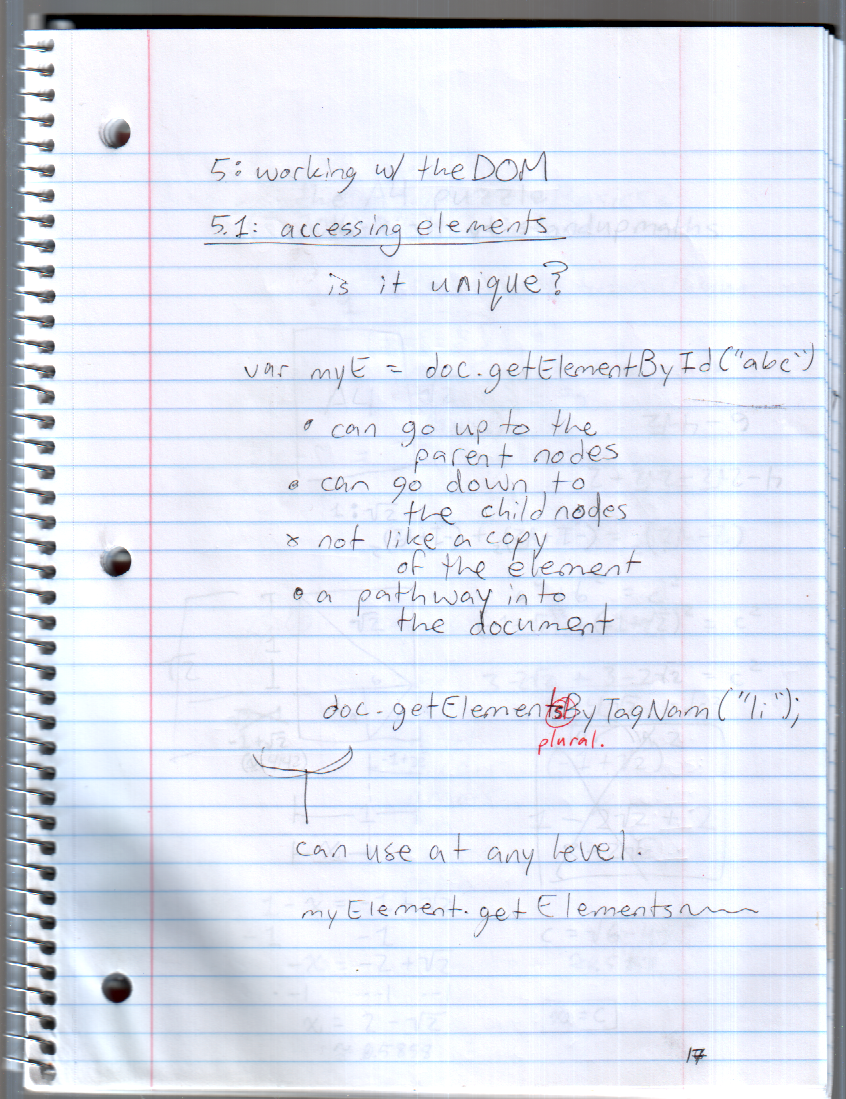 5: working w/ the DOM
5.1: accessing elements
is it unique?
var myE = doc.getElementById("abc")
• can go up to the
parent nodes
• can go down to
the child nodes
x not like a copy
of the element
• a pathway into
the document
doc.getElementsByTagNam("li");
plural.
can use at any level.
myElement.getElements
17